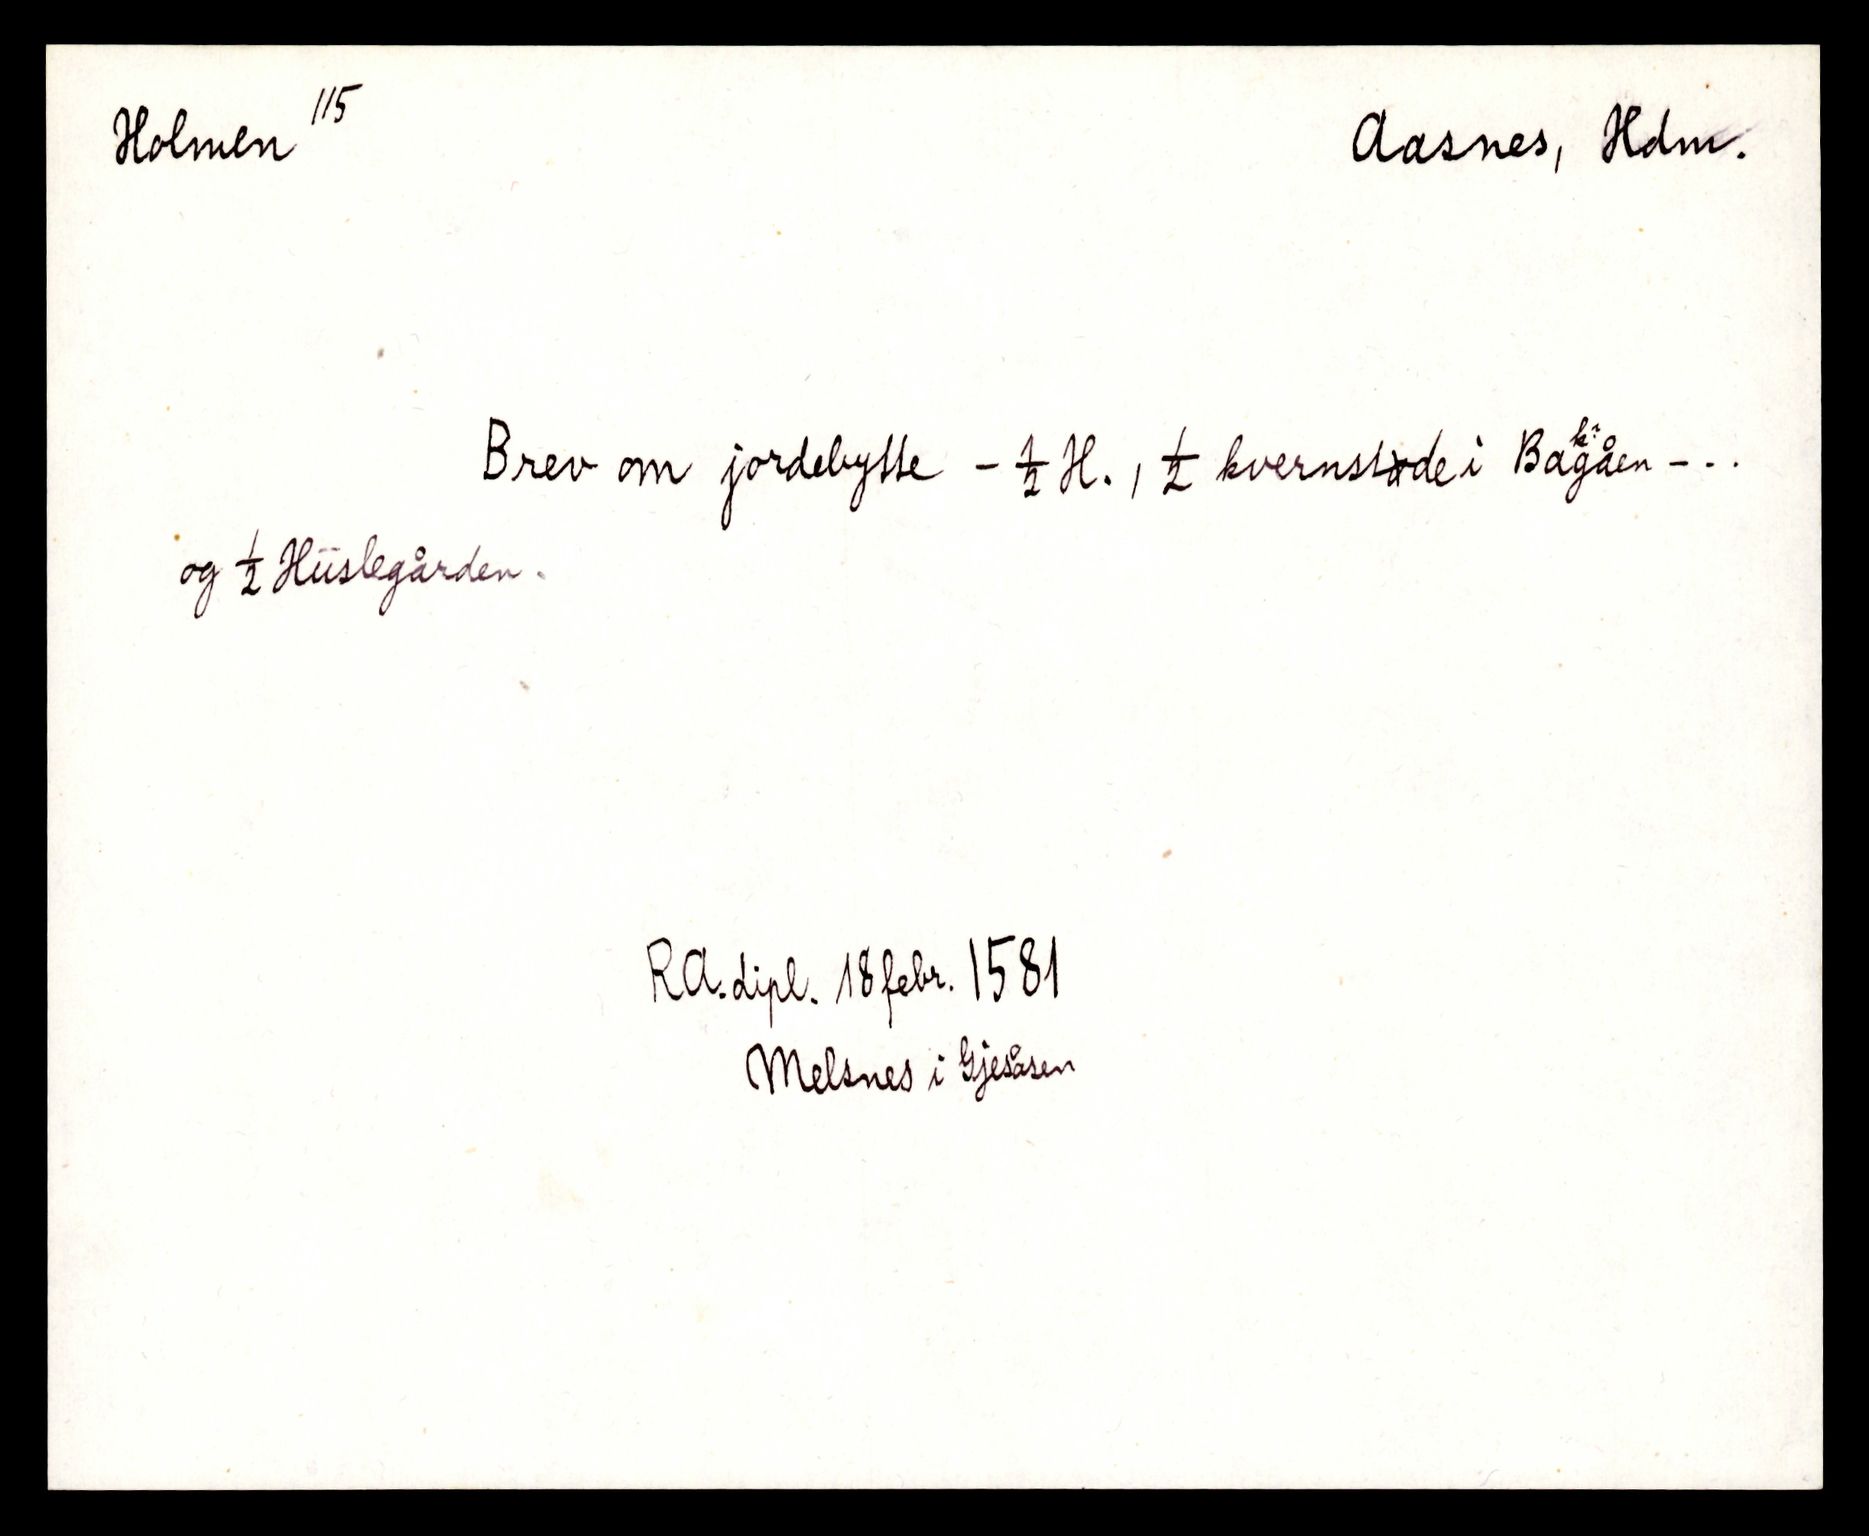 Holmen 115
Aasnes, Hdm.
Brev om jordebytte - 1/2 H., 1/2 kvernstøde i Bagåen - . .
k?
og 1/2 Hüslegården.
RA. dipl. 18 febr. 1581
Melsnes i Gjesåsen